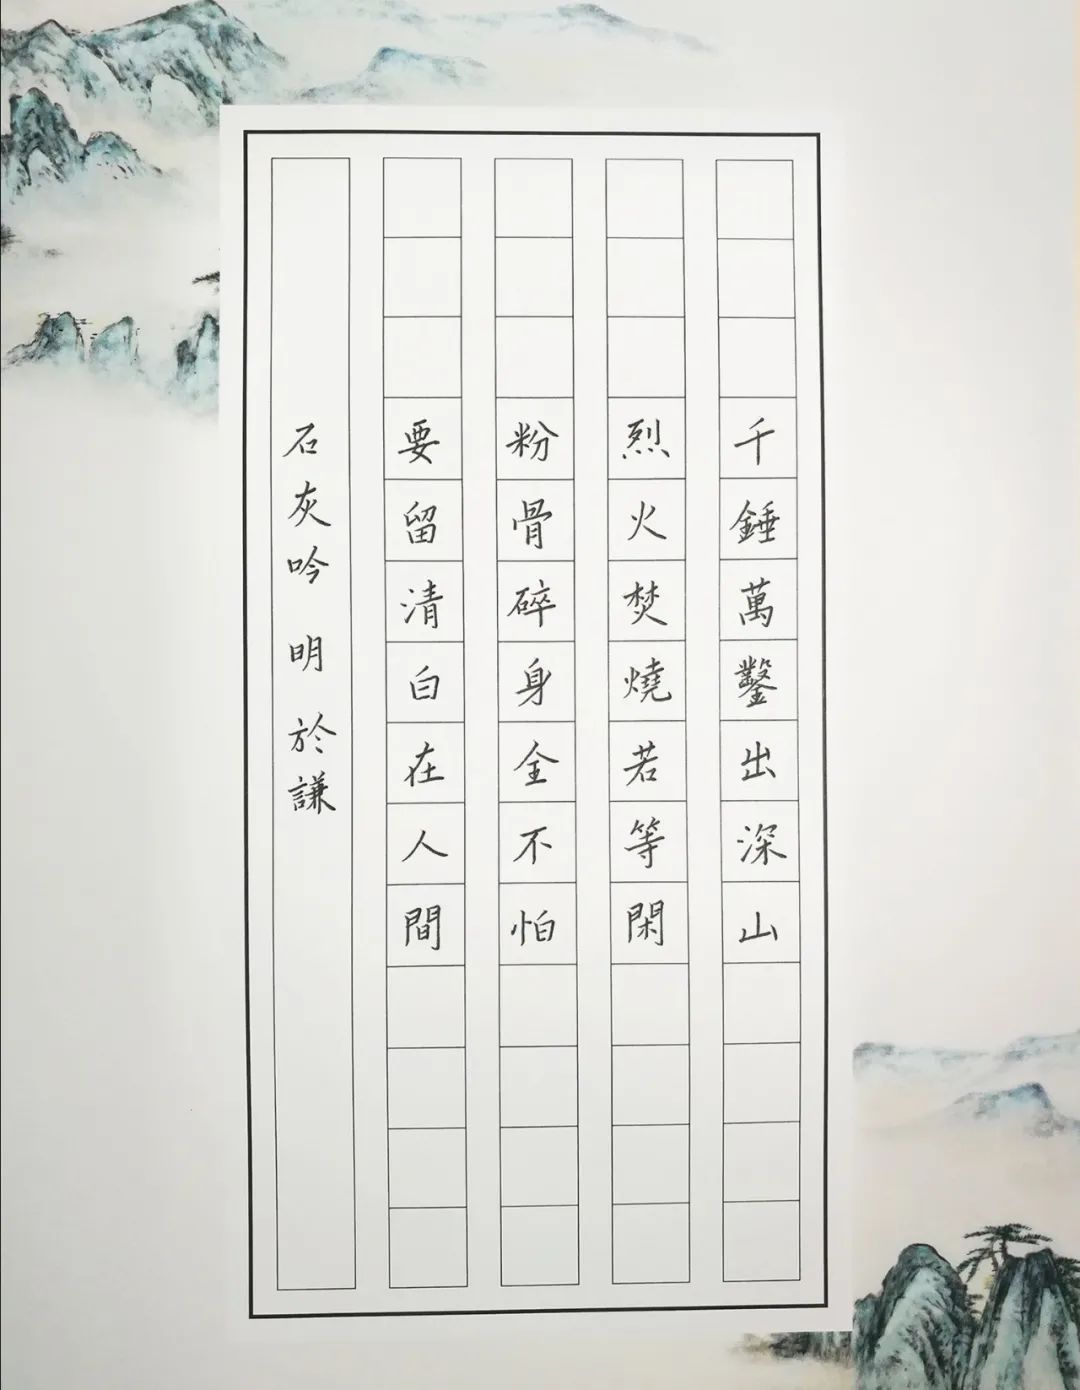 千錘萬鑿出深山
烈火焚燒若等閑
粉骨碎身全不怕
要留清白在人間
石灰吟 明 於謙